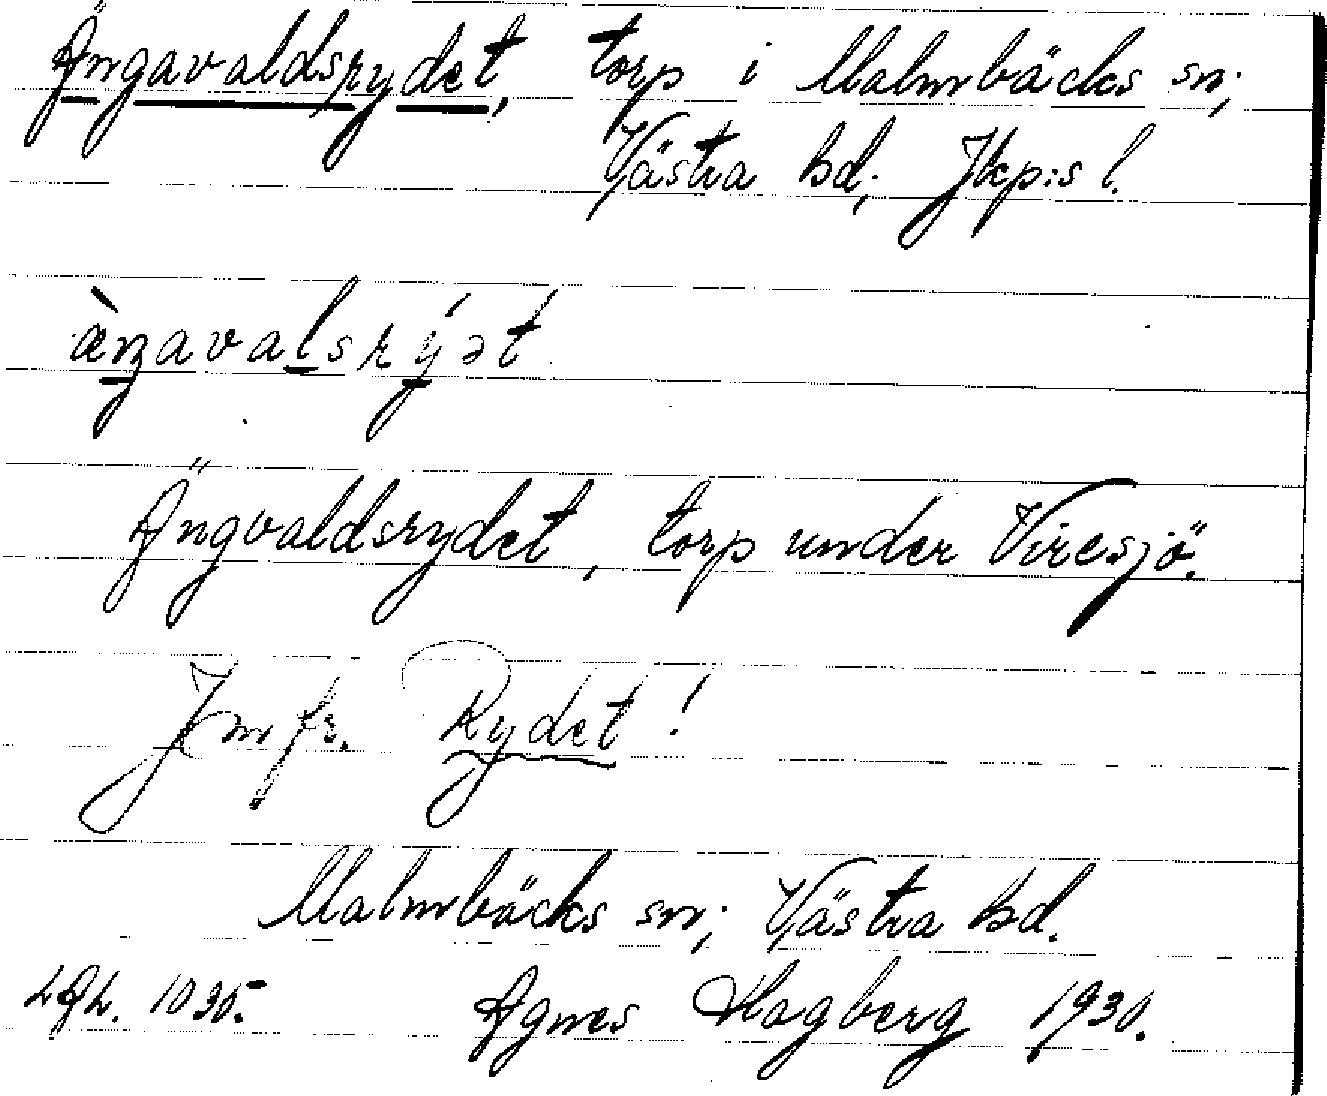 Ängavaldsrydet, torp i Malmbäcks sn;
Västra hd; Jkp:s l.
ängavalsrýǝt
Ängvaldsrydet, torp under Viresjö.
Jmfr. Rydet!
Malmbäcks sn; Västra hd.
1930. Agnes Hagberg 1930.